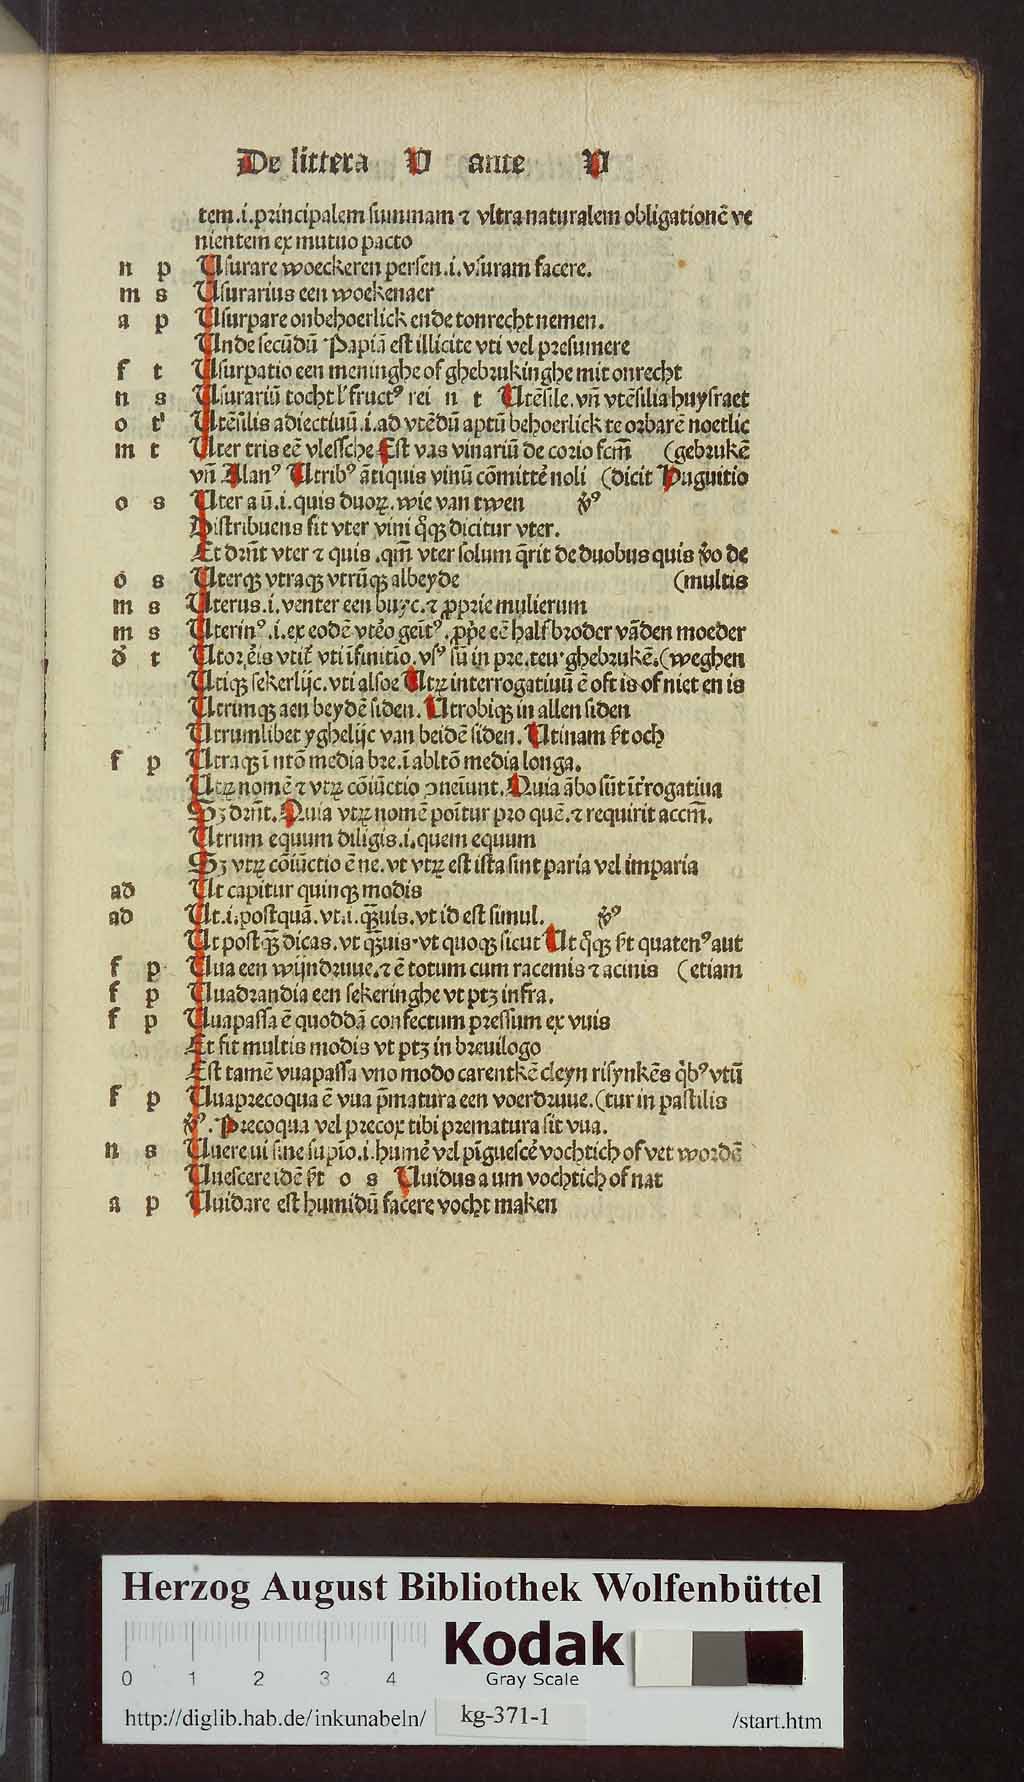 De littera V ante V
tem .i. principalem summam ⁊ vltra naturalem obligationē ve
nientem ex mutuo pacto
n p Usurare woeckeren persen .i. vsuram facere.
m s Usurarius een woekenaer
a p Usurpare onbehoerlick ende tonrecht nemen.
Unde secūdū Papiā est illicite vti vel presumere
f t Usurpatio een meninghe of ghebrukinghe mit onrecht
n s Usurariū tocht l' fructꝰ rei n t Utēsile. vn̄ vtēsilia huysraet
o tˡ Utēsilis adiectiuū .i. ad vtēdū aptū behoerlick te orbarē noetlic
m t Uter tris eē vlessche Est vas vinariū de corio scm̄ (gebrukē
vn̄ Alanꝰ Utribꝰ ātiquis vinū cōmitte᷒ noli (dicit Huguitio
o s Uter a ū .i. quis duoꝝ. wie van twen v̓ꝰ
Distribuens sit vter vini qͦꝗ dicitur vter.
Et dr̄nt vter ⁊ quis . qm̄ vter solum q̄rit de duobus quis v̓o de
o s Uterqꝫ vtraqꝫ vtrūqꝫ albeyde (multis
m s Uterus .i. venter een buyc. ⁊ ꝓprie mulierum
m s Uterinꝰ .i. ex eodē vte̓o geitꝰ. ꝓp̄e eē half broder vāden moeder
d̓ t Utor, e̓is vtit᷑ vti īfinitīo. vsꝰ sū in pre. teu ghebrukē. (weghen
Utiqꝫ sekerlijc. vti alsoe Utꝝ interrogatiuū ē oft is of niet en is
Utrimqꝫ aen beydē siden. Utrobiqꝫ in allen siden
Utrumlibet yghelijc van beidē siden. Utinam s̓t och
f p Utraqꝫ ī ntō media bre. ī abltō media longa.
Utꝝ nomē ⁊ vtꝝ cōiūctio ꝯneiunt. Quia ābo sūt īt̓rogatiua
Sꝫ dr̄nt. Quia vtꝝ nomē poītur pro quē. ⁊ requirit accm̄.
Utrum equum diligis .i. quem equum
Sꝫ vtꝝ cōiūctio ē ne. vt vtꝝ est ista sint paria vel imparia
ad Ut capitur quinqꝫ modis
ad Ut .i. postquā. vt .i. qꝫuis. vt id est simul. v̓ꝰ
Ut postqꝫ dicas. vt qꝫuis. vt quoqꝫ sicut Ut qͦꝗ s̓t quatenꝰ aut
f p Uua een wijndruue. ⁊ ē totum cum racemis ⁊ acinis (etiam
f p Uuadrandia een sekeringhe vt ptꝫ infra.
f p Uuapassa ē quoddā confectum pressum ex vuis
Et fit multis modis vt ptꝫ in breuilogo
Est tamē vuapassa vno modo carentkē cleyn risynkēs qͥbꝰ vtū
f p Uuaprecoqua ē vua p̄matura een voerdruue. (tur in pastilis
v̓ꝰ. Precoqua vel precox tibi prematura sit vua.
n s Uuere ui sine supīo .i. hume᷒ vel pīguesce᷒ vochtich of vet wordē
Uuescere idē s̓t o s Uuidus a um vochtich of nat
a p Uuidare est humidū facere vocht maken
Herzog August Bibliothek Wolfenbüttel
Kodak
Gray Scale
0 1 2 3 4
http://diglib.hab.de/inkunabeln/ kg-371-1 /start.htm